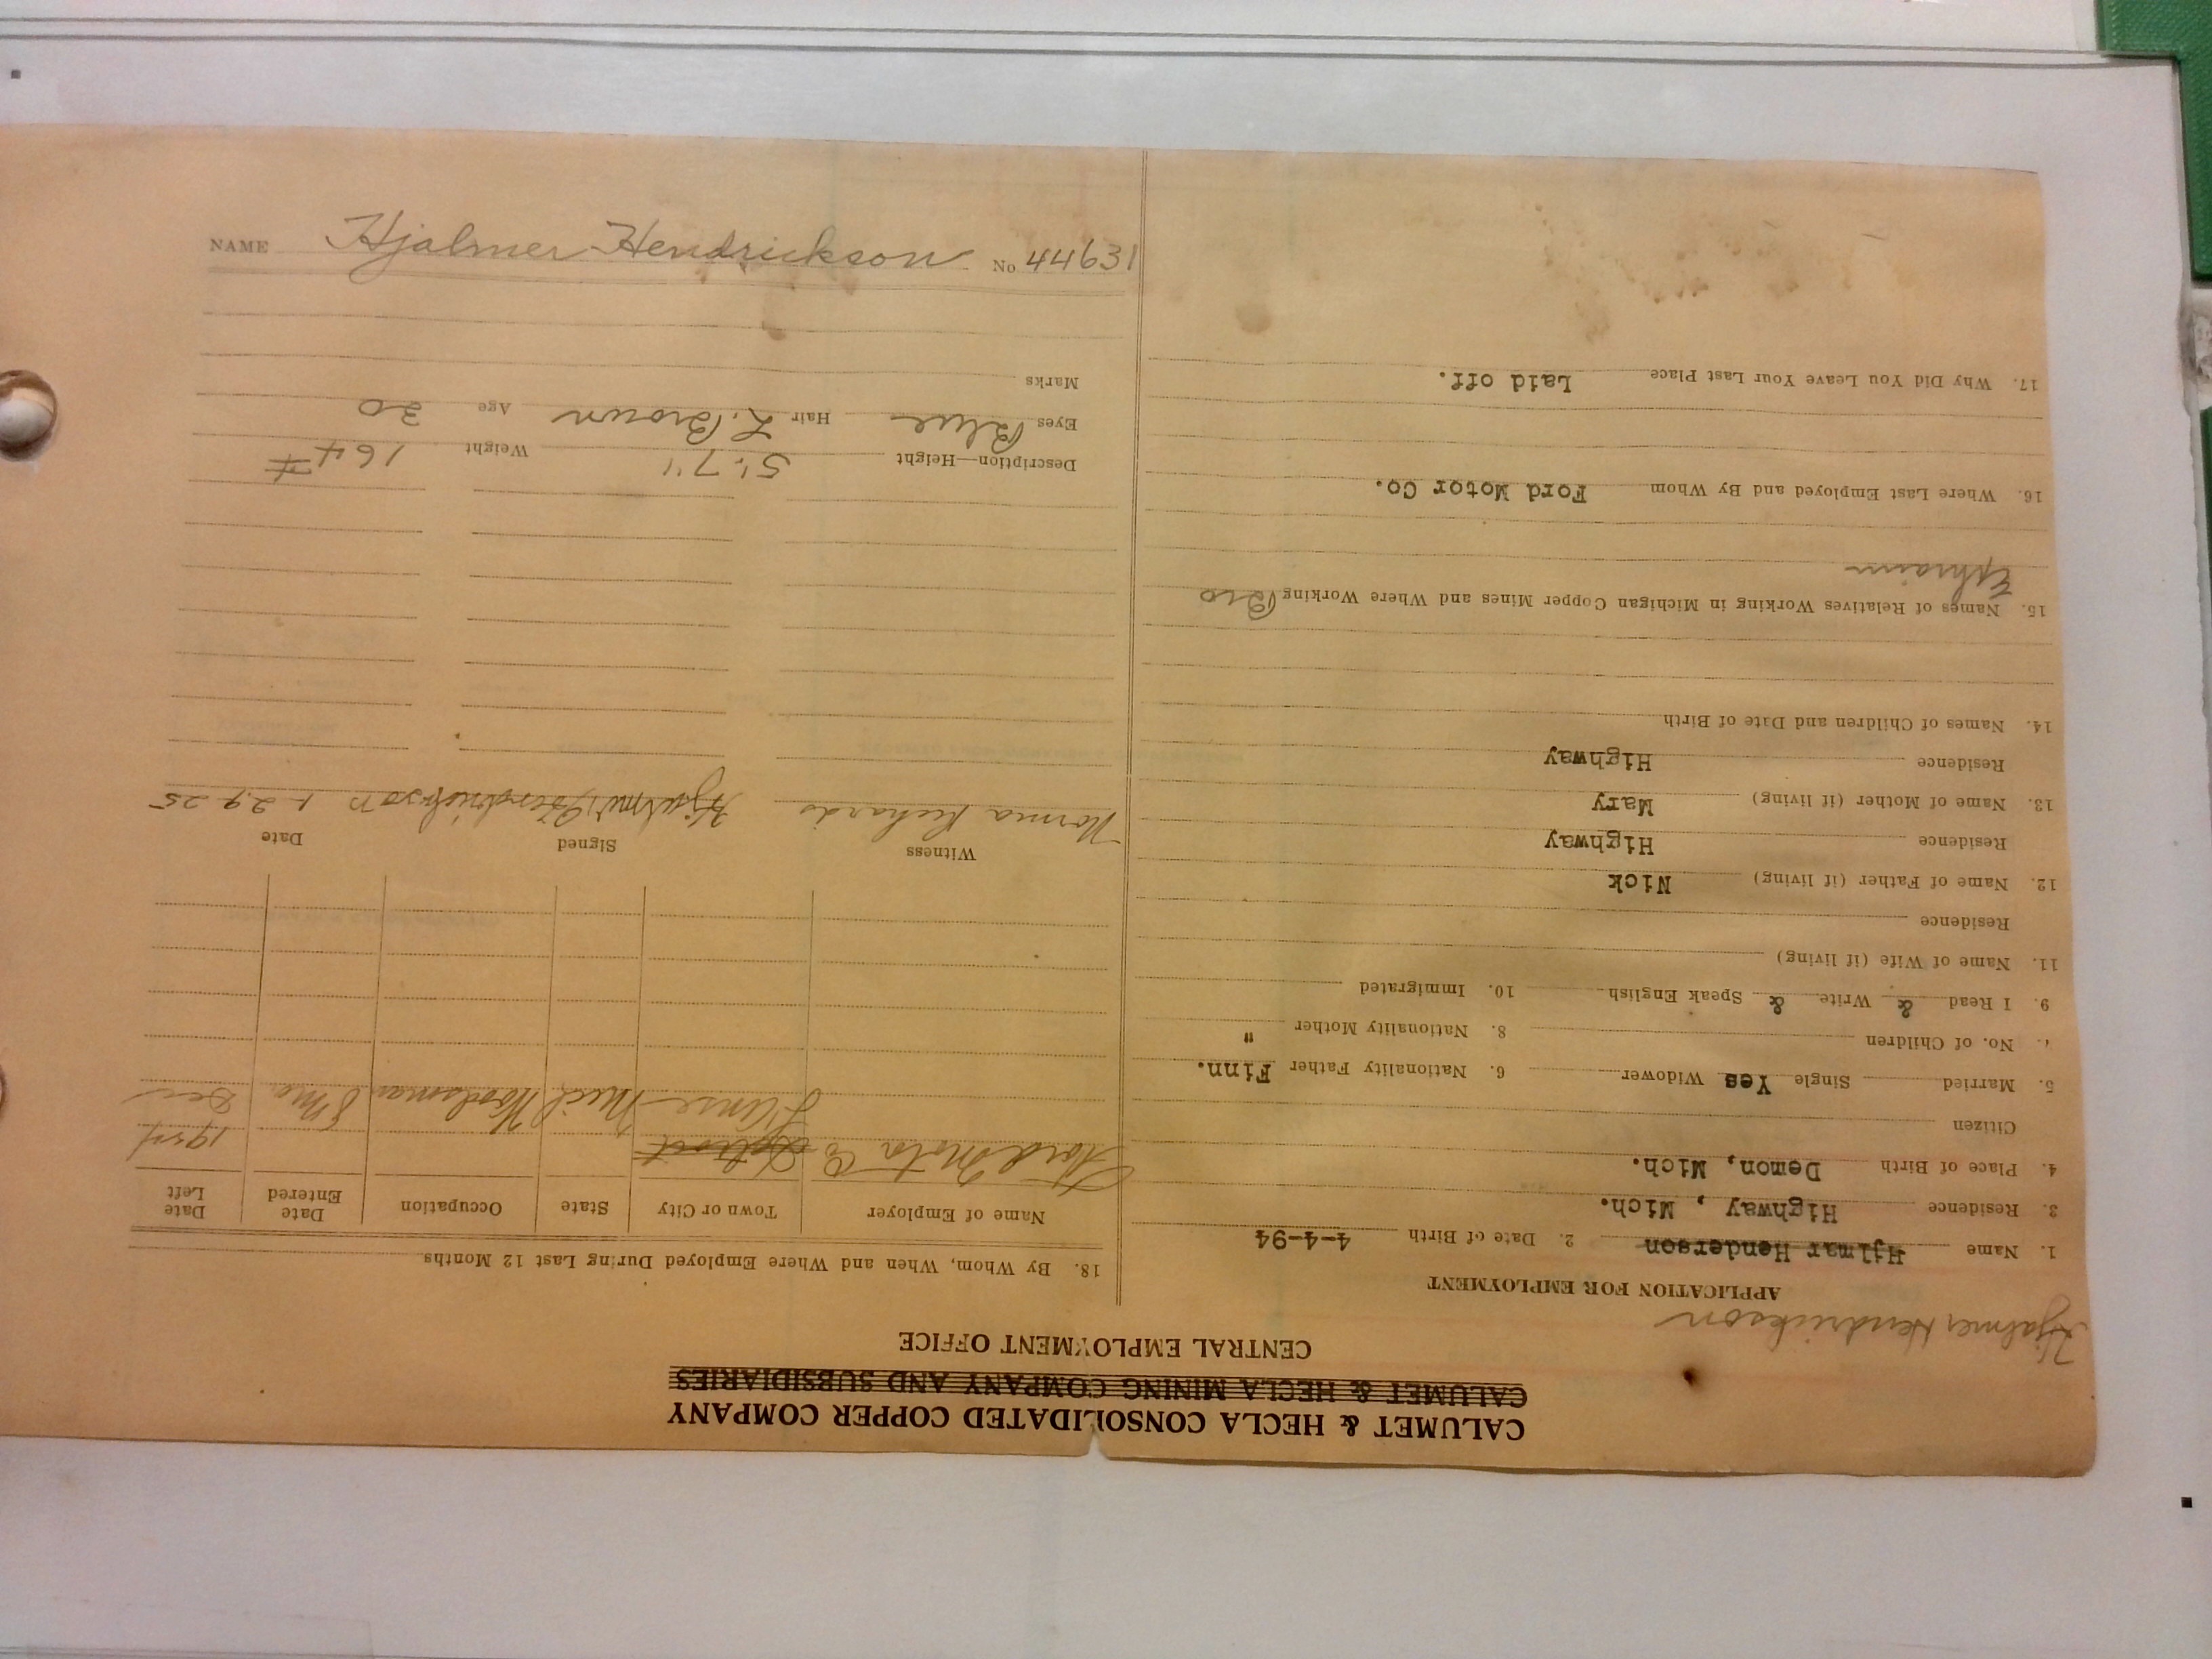 CALUMET & HECLA CONSOLIDATED COPPER COMPANY
CALUMET & HECLA MINING COMPANY AND SUBSIDIARIES
CENTRAL EMPLOYMENT OFFICE
Hjalmer Hendrickson
APPLICATION FOR EMPLOYMENT
1. Name Hjlmar Henderson 2. Date of Birth 4-4-94
3. Residence Highway , Mich.
4. Place of Birth Demon, Mich.
Citizen
5. Married Single Yes Widower 6. Nationality Father Finn.
7. No. of Children 8. Nationality Mother "
9. I Read & Write & Speak English 10. Immigrated
11. Name of Wife (if living)
Residence
12. Name of Father (if living) Nick
Residence Highway
13. Name of Mother (if living) Mary
Residence Highway
14. Names of Children and Date of Birth
15. Names of Relatives Working in Michigan Copper Mines and Where Working Bro
Ephraim
16. Where Last Employed and By Whom Ford Motor Co.
17. Why Did You Leave Your Last Place Laid off.
18. By Whom, When and Where Employed During Last 12 Months
Name of Employer Town or City State Occupation Date Entered Date Left
Ford Motor Co Detroit 1924
L'anse Mich Woodsman 8 Mo. Dec
Witness Signed Date
Norma Richards Hjalmer Hendrickson 1-29-25
Description—Height 5'.7" Weight 164 #
Eyes Blue Hair L. Brown Age 30
Marks
NAME Hjalmer Hendrickson No 44631